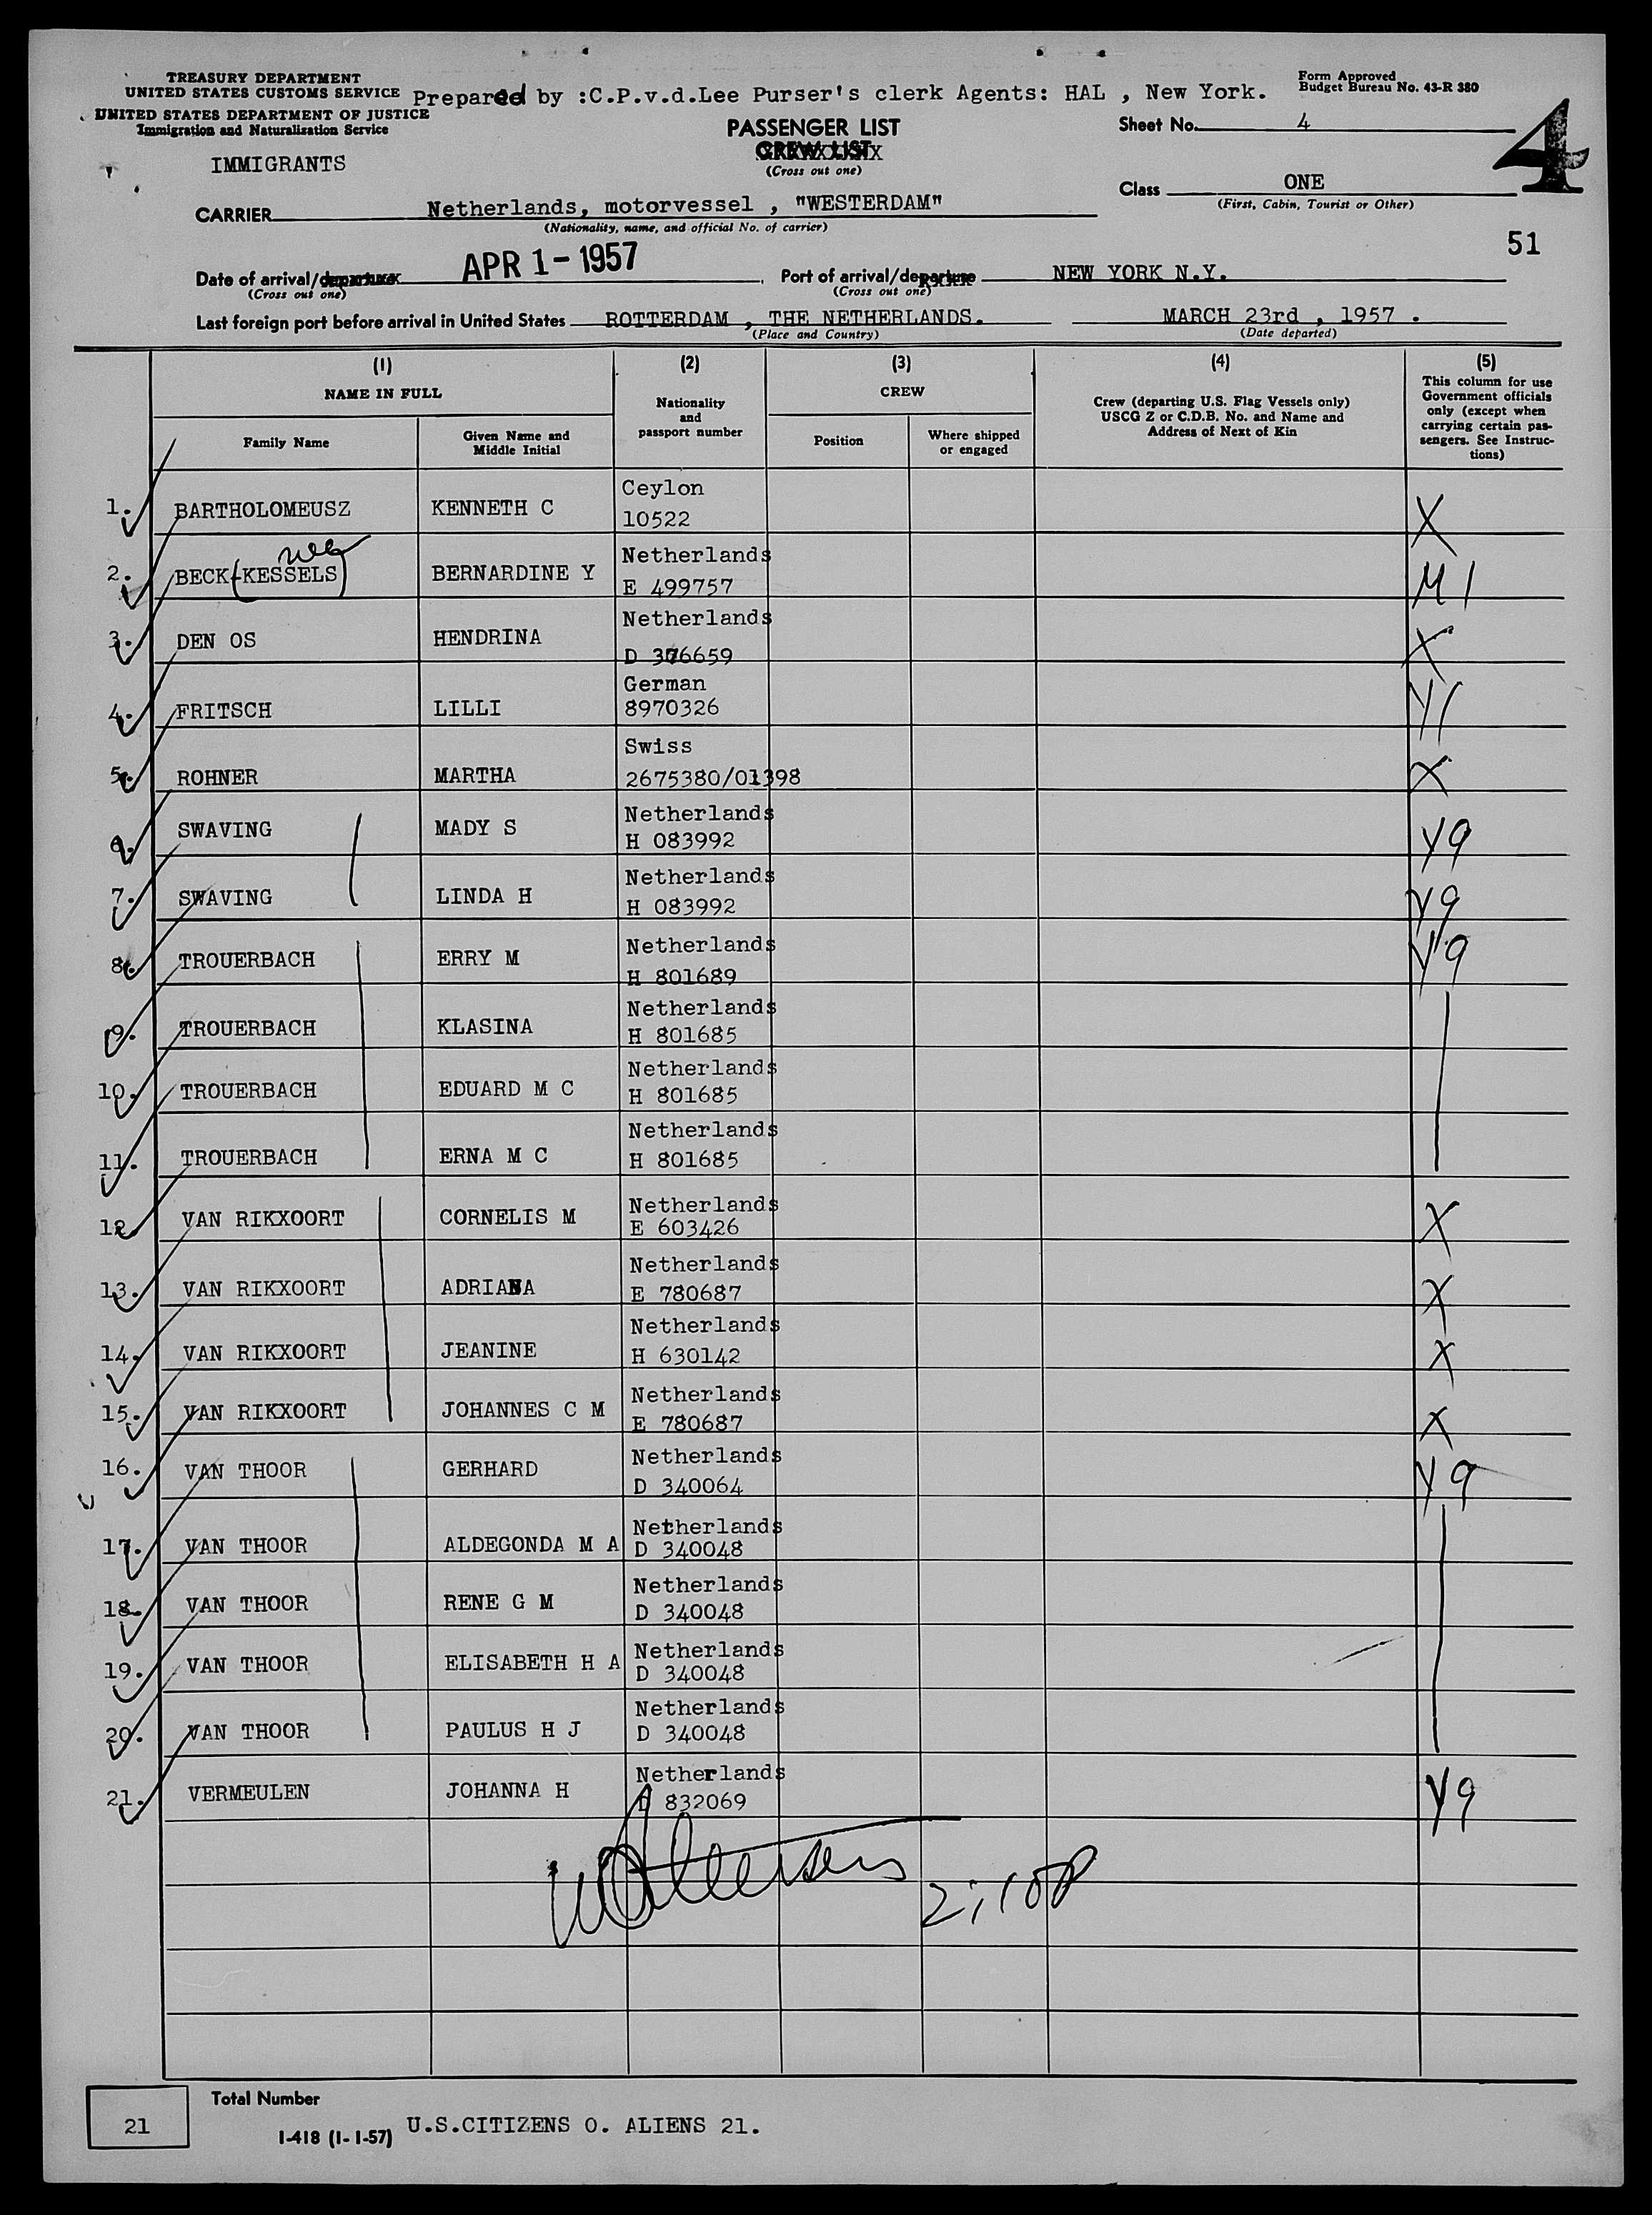 TREASURY DEPARTMENT
UNITED STATES CUSTOMS SERVICE
UNITED STATES DEPARTMENT OF JUSTICE
Immigration and Naturalization Service
Prepared by :C.P.v.d.Lee Purser's clerk Agents: HAL , New York.
Form Approved
Budget Bureau No. 43-R 380
PASSENGER LIST
CREW LIST
(Cross out one)
Sheet No. 4
4
IMMIGRANTS
Class ONE
(First, Cabin, Tourist or Other)
CARRIER Netherlands, motorvessel , "WESTERDAM"
(Nationality, name, and official No. of carrier)
51
Date of arrival/departure APR 1 - 1957 Port of arrival/departure NEW YORK N.Y.
(Cross out one) (Cross out one)
Last foreign port before arrival in United States ROTTERDAM , THE NETHERLANDS. MARCH 23rd , 1957 .
(Place and Country) (Date departed)
(1) (2) (3) (4) (5)
NAME IN FULL
Family Name
Given Name and
Middle Initial
Nationality
and
passport number
CREW
Position
Where shipped
or engaged
Crew (departing U.S. Flag Vessels only)
USCG Z or C.D.B. No. and Name and
Address of Next of Kin
This column for use
Government officials
only (except when
carrying certain pas-
sengers. See Instruc-
tions)
1. BARTHOLOMEUSZ KENNETH C Ceylon
10522 X
2. BECK-(KESSELS) nee BERNARDINE Y Netherlands
E 499757 M 1
3. DEN OS HENDRINA Netherlands
D 376659 X
4. FRITSCH LILLI German
8970326
5. ROHNER MARTHA Swiss
2675380/01398 X
6. SWAVING MADY S Netherlands
H 083992 Y9
7. SWAVING LINDA H Netherlands
H 083992 Y9
8. TROUERBACH ERRY M Netherlands
H 801689 Y9
9. TROUERBACH KLASINA Netherlands
H 801685
10. TROUERBACH EDUARD M C Netherlands
H 801685
11. TROUERBACH ERNA M C Netherlands
H 801685
12. VAN RIKXOORT CORNELIS M Netherlands
E 603426 X
13. VAN RIKXOORT ADRIANA Netherlands
E 780687 X
14. VAN RIKXOORT JEANINE Netherlands
H 630142 X
15. VAN RIKXOORT JOHANNES C M Netherlands
E 780687 X
16. VAN THOOR GERHARD Netherlands
D 340064 Y9
17. VAN THOOR ALDEGONDA M A Netherlands
D 340048
18. VAN THOOR RENE G M Netherlands
D 340048
19. VAN THOOR ELISABETH H A Netherlands
D 340048
20. VAN THOOR PAULUS H J Netherlands
D 340048
21. VERMEULEN JOHANNA H Netherlands
D 832069 Y9
21
Total Number
I-418 (1-1-57) U.S.CITIZENS 0. ALIENS 21.